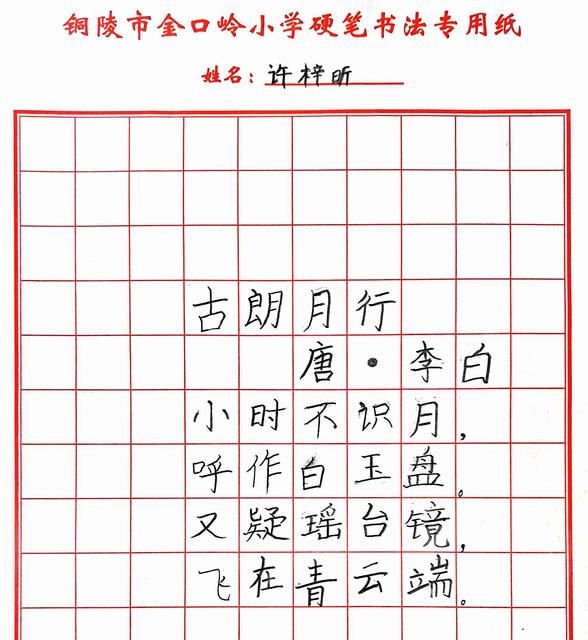 铜陵市金口岭小学硬笔书法专用纸
姓名：许梓昕
古朗月行
唐·李白
小时不识月，
呼作白玉盘。
又疑瑶台镜，
飞在青云端。